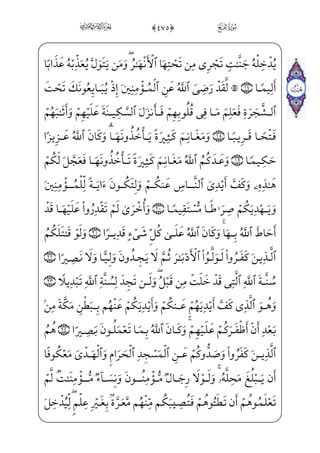 ﴿٤٧٥﴾
يُدْخِلْهُ جَنَّٰتٍ تَجْرِى مِن تَحْتِهَا ٱلْأَنْهَٰرُ ۖ وَمَن يَتَوَلَّ يُعَذِّبْهُ عَذَابًا
أَلِيمًا ﴿١٧﴾ ۞ لَّقَدْ رَضِىَ ٱللَّهُ عَنِ ٱلْمُؤْمِنِينَ إِذْ يُبَايِعُونَكَ تَحْتَ
ٱلشَّجَرَةِ فَعَلِمَ مَا فِى قُلُوبِهِمْ فَأَنزَلَ ٱلسَّكِينَةَ عَلَيْهِمْ وَأَثَٰبَهُمْ
فَتْحًا قَرِيبًا ﴿١٨﴾ وَمَغَانِمَ كَثِيرَةً يَأْخُذُونَهَا ۗ وَكَانَ ٱللَّهُ عَزِيزًا
حَكِيمًا ﴿١٩﴾ وَعَدَكُمُ ٱللَّهُ مَغَانِمَ كَثِيرَةً تَأْخُذُونَهَا فَعَجَّلَ لَكُمْ
هَٰذِهِۦ وَكَفَّ أَيْدِىَ ٱلنَّاسِ عَنكُمْ وَلِتَكُونَ ءَايَةً لِّلْمُؤْمِنِينَ
وَيَهْدِيَكُمْ صِرَٰطًا مُّسْتَقِيمًا ﴿٢٠﴾ وَأُخْرَىٰ لَمْ تَقْدِرُوا۟ عَلَيْهَا قَدْ
أَحَاطَ ٱللَّهُ بِهَا ۚ وَكَانَ ٱللَّهُ عَلَىٰ كُلِّ شَىْءٍ قَدِيرًا ﴿٢١﴾ وَلَوْ قَٰتَلَكُمُ
ٱلَّذِينَ كَفَرُوا۟ لَوَلَّوُا۟ ٱلْأَدْبَٰرَ ثُمَّ لَا يَجِدُونَ وَلِيًّا وَلَا نَصِيرًا ﴿٢٢﴾
سُنَّةَ ٱللَّهِ ٱلَّتِى قَدْ خَلَتْ مِن قَبْلُ ۖ وَلَن تَجِدَ لِسُنَّةِ ٱللَّهِ تَبْدِيلًا ﴿٢٣﴾
وَهُوَ ٱلَّذِى كَفَّ أَيْدِيَهُمْ عَنكُمْ وَأَيْدِيَكُمْ عَنْهُم بِبَطْنِ مَكَّةَ مِنۢ
بَعْدِ أَنْ أَظْفَرَكُمْ عَلَيْهِمْ ۚ وَكَانَ ٱللَّهُ بِمَا تَعْمَلُونَ بَصِيرًا ﴿٢٤﴾ هُمُ
ٱلَّذِينَ كَفَرُوا۟ وَصَدُّوكُمْ عَنِ ٱلْمَسْجِدِ ٱلْحَرَامِ وَٱلْهَدْىَ مَعْكُوفًا
أَن يَبْلُغَ مَحِلَّهُۥ ۚ وَلَوْلَا رِجَالٌ مُّؤْمِنُونَ وَنِسَآءٌ مُّؤْمِنَٰتٌ لَّمْ
تَعْلَمُوهُمْ أَن تَطَـُٔوهُمْ فَتُصِيبَكُم مِّنْهُم مَّعَرَّةٌۢ بِغَيْرِ عِلْمٍ ۖ لِّيُدْخِلَ